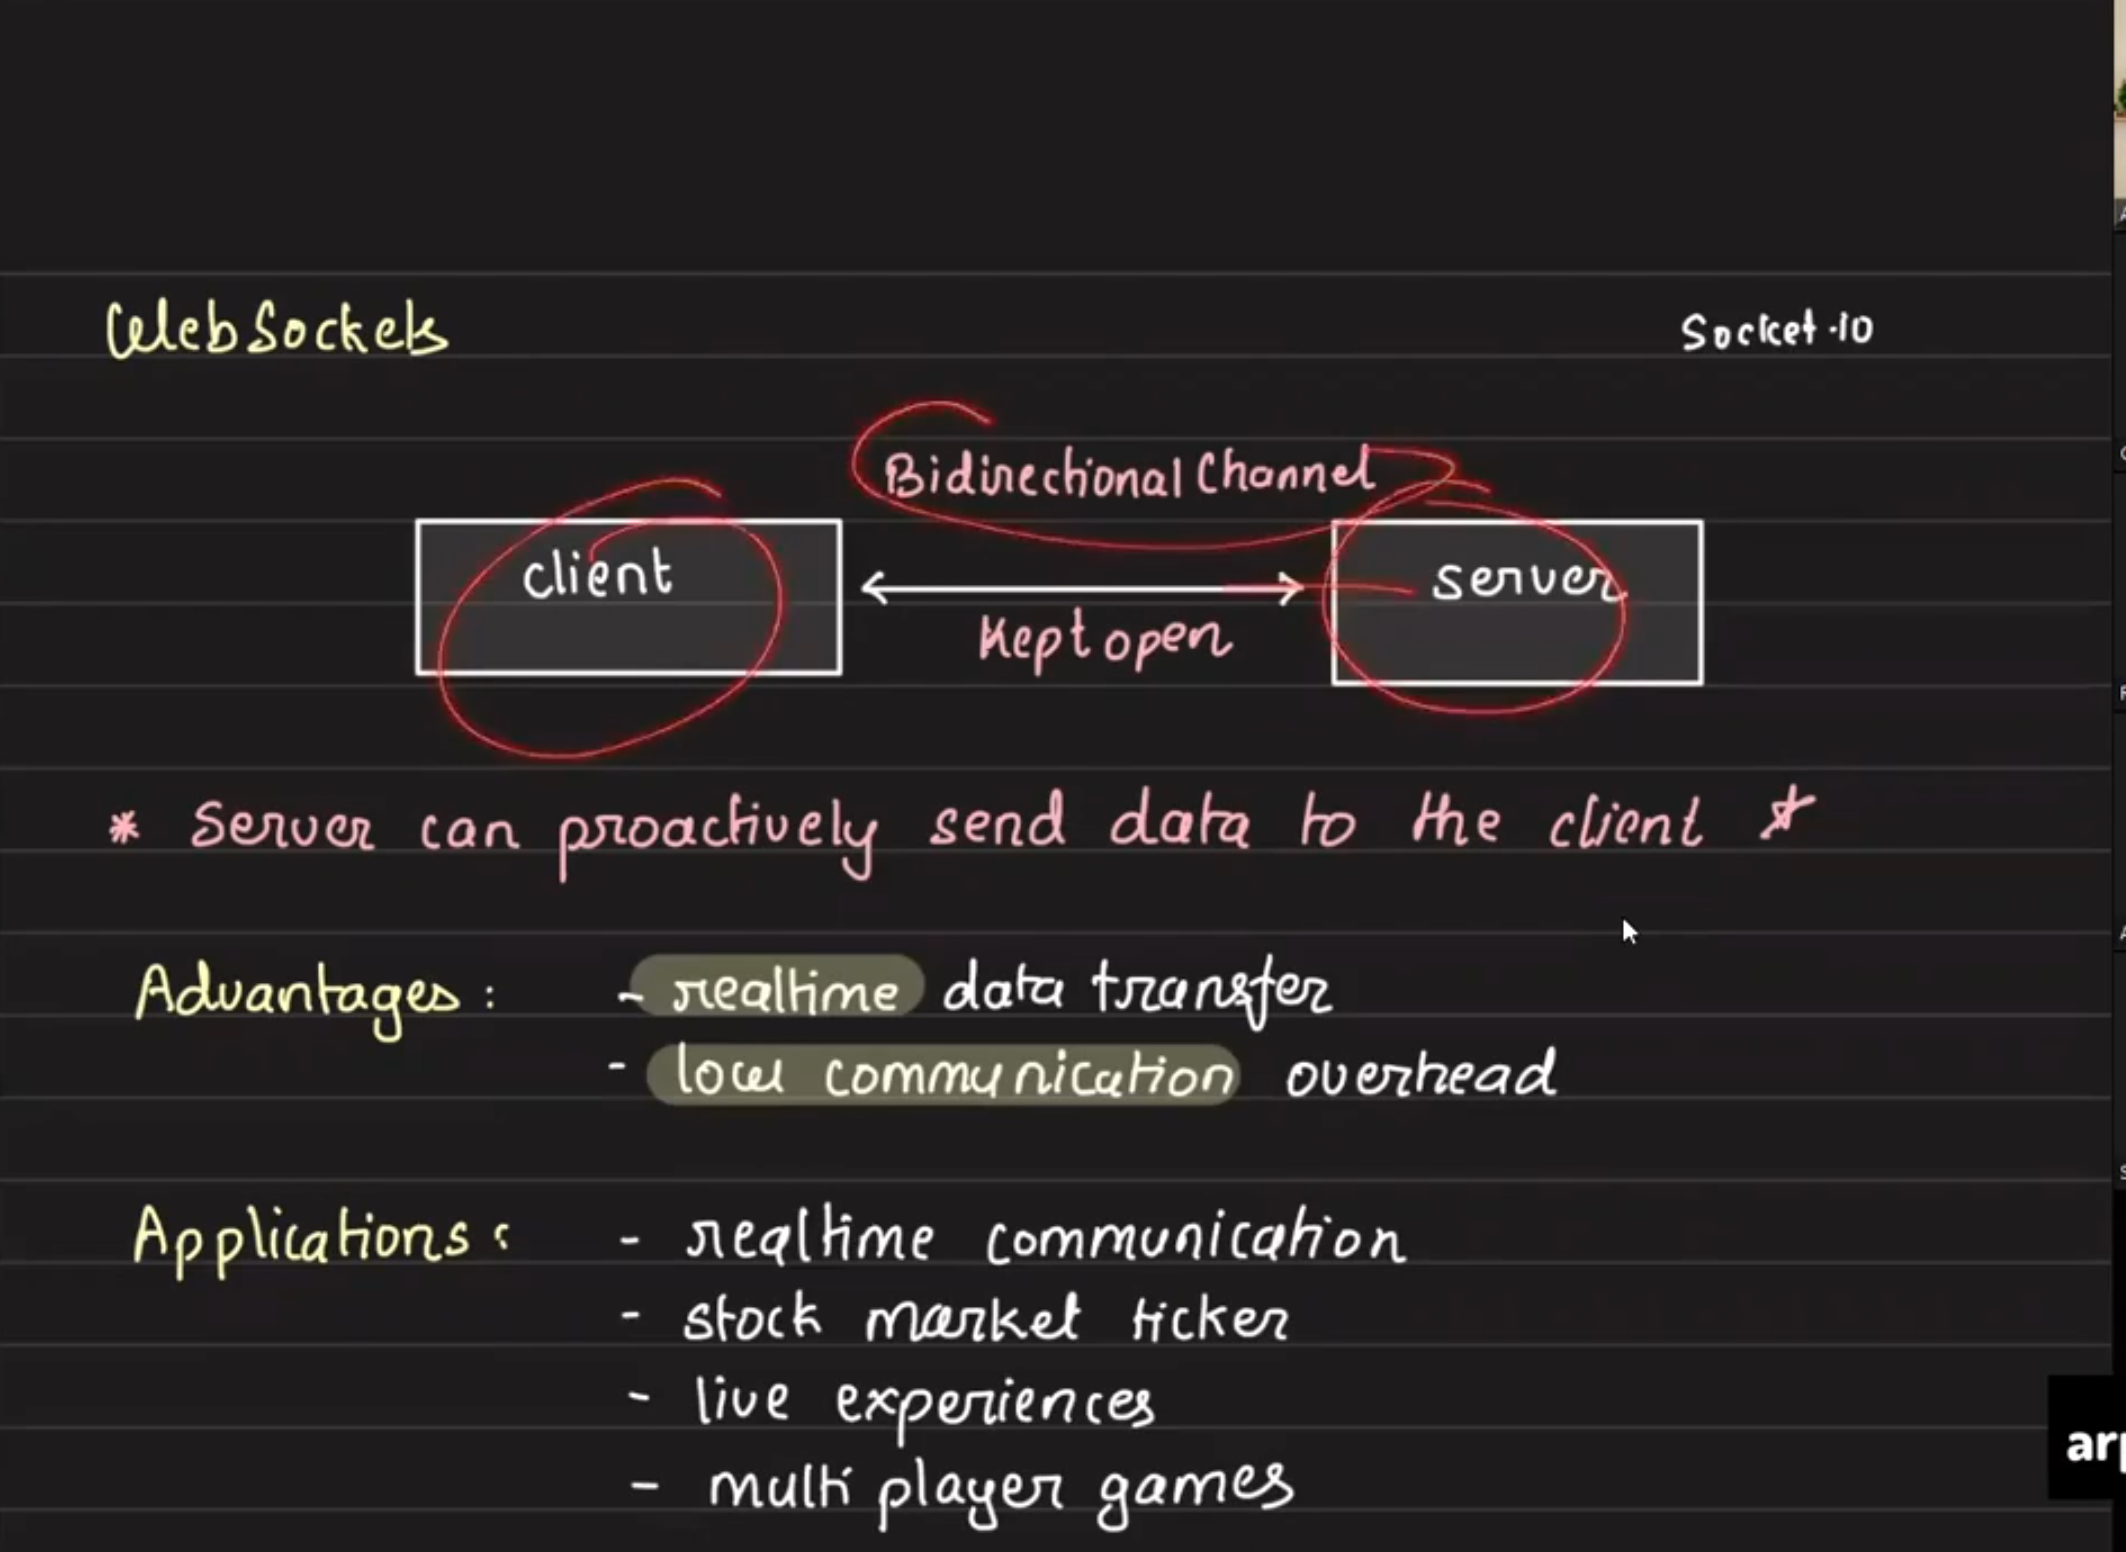 WebSockets
Socket.io
Bidirectional Channel
client
server
Kept open
* Server can proactively send data to the client *
Advantages: - realtime data transfer
- low communication overhead
Applications: - realtime communication
- stock market ticker
- live experiences
- multi player games